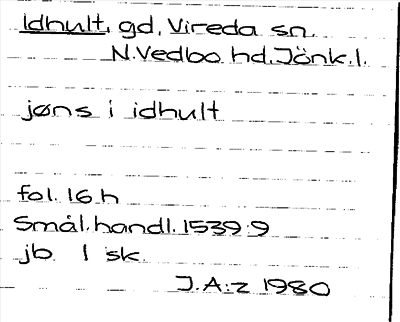 Idhult, gd, Vireda sn.
N.Vedbo hd. Jönk.l.
jøns i idhult
fol. 16 h
Smål. handl. 1539:9
jb 1 sk.
J.A:z 1980